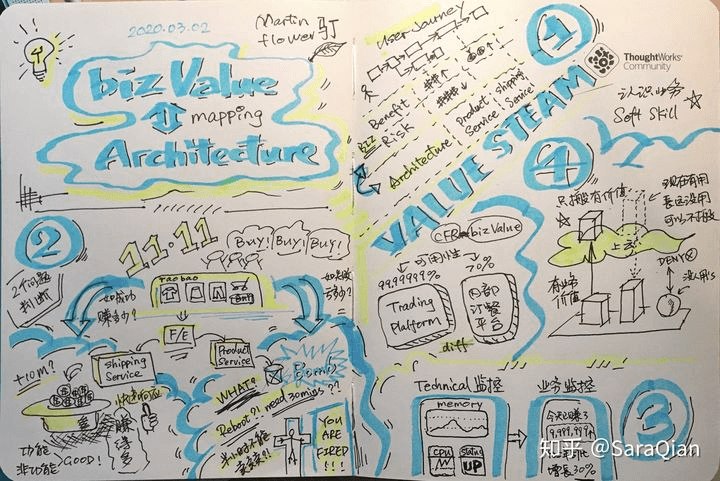 2020.03.02
Martin
flower
biz Value
mapping
Architecture
User Journey
Benefit
Biz Risk
Architecture
Product Service
shipping Service
VALUE STEAM
1
ThoughtWorks
Community
认识业务
Soft Skill
2
2个问题
判断
11·11
Buy! Buy! Buy!
Taobao
如成功
赚多少?
F/E
shipping
Service
Product
Service
+10m?
功能
非功能
GOOD!
赚得多
WHAT?
Reboot?! need 30mins??
Bomb
YOU
ARE
FIRED
!!!
CFR biz Value
可用性
99.99999%
70%
Trading
Platform
内部
订餐
平台
diff
4
只搬有价值
现在有用
可以不搬
上云
DENY
有业务
价值
没用
3
Technical 监控
memory
CPU
status
UP
业务监控
今天已赚
9,999,999
增长30%
知乎 @SaraQian